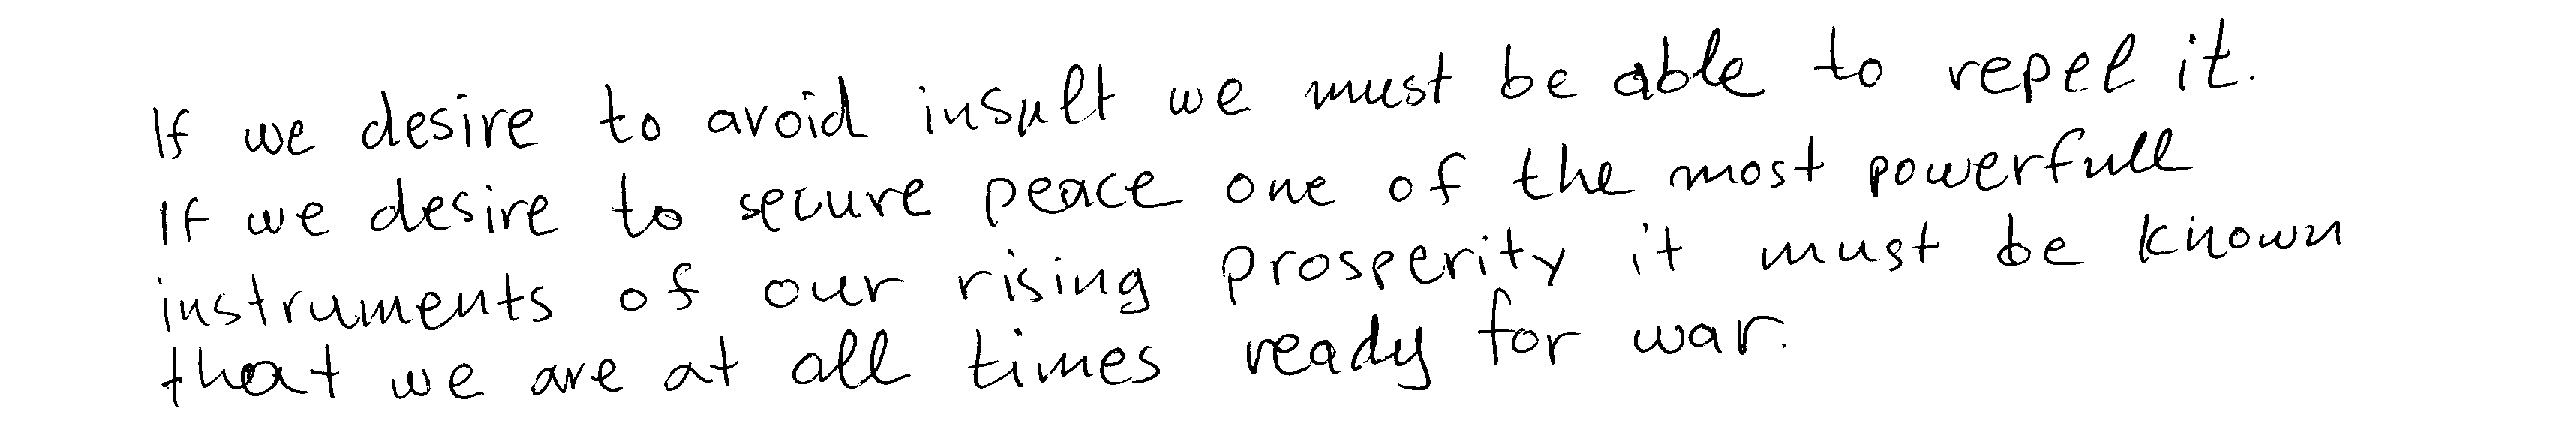 If we desire to avoid insult we must be able to repel it.
If we desire to secure peace one of the most powerfull
instruments of our rising prosperity it must be known
that we are at all times ready for war.